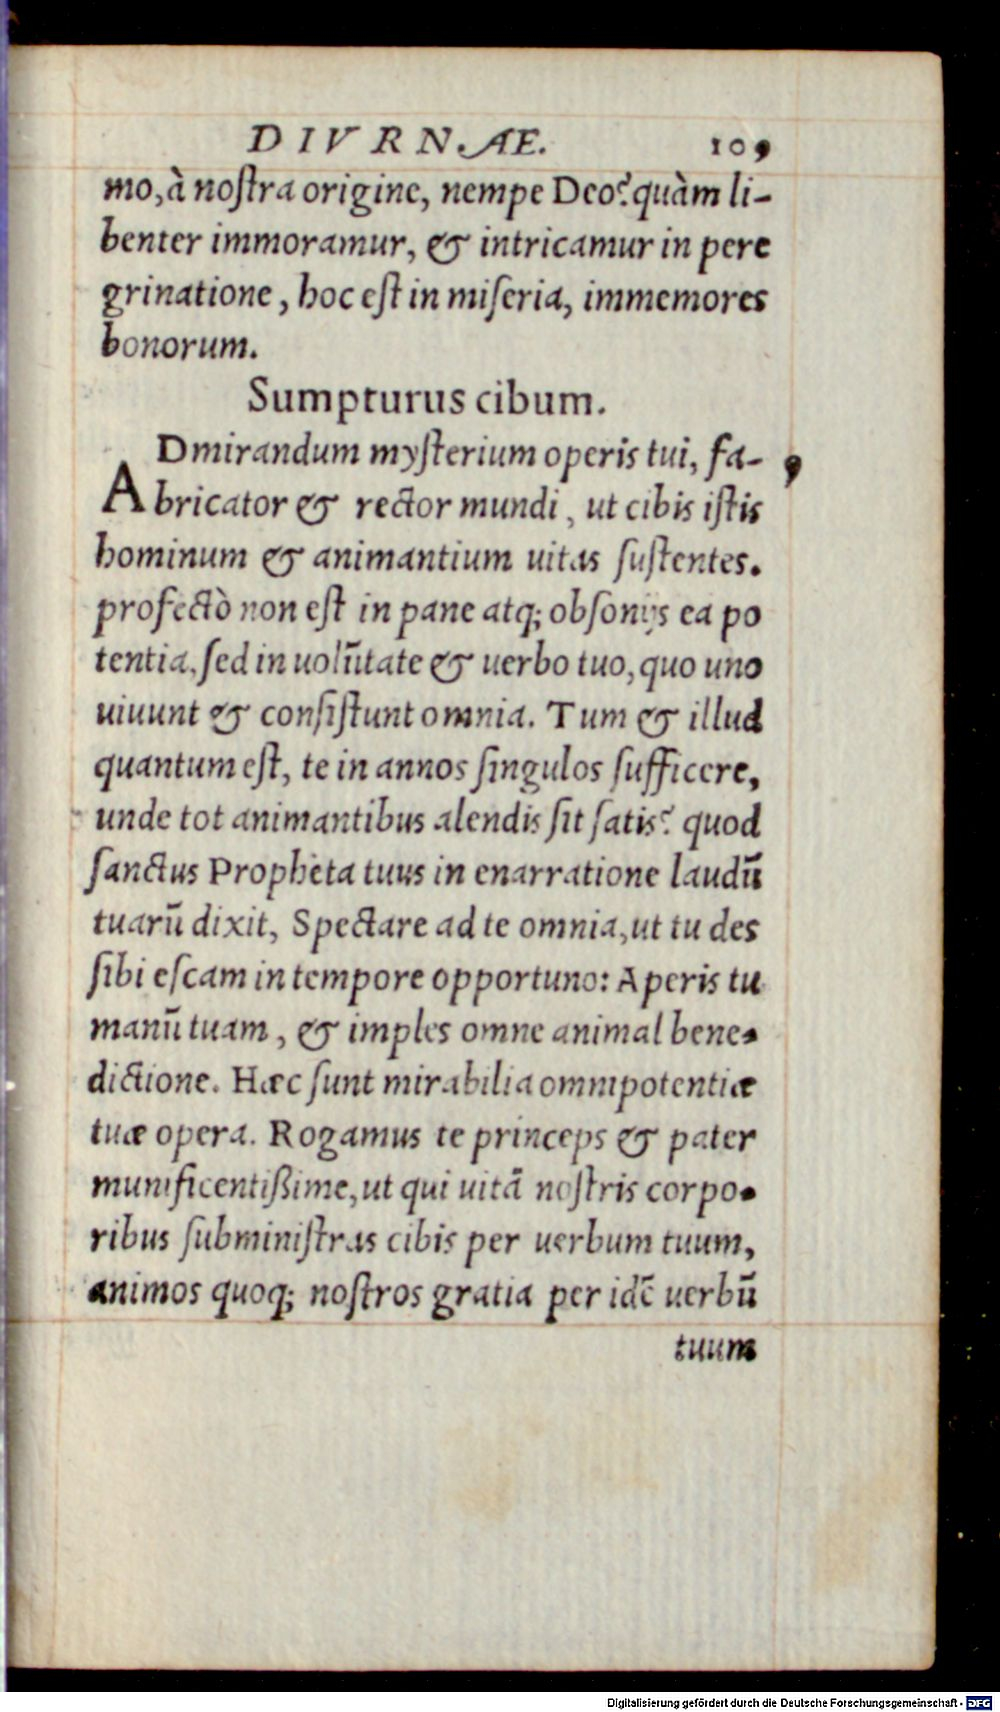 DIVRNAE. 109
mo, à noſtra origine, nempe Deo? quàm li-
benter immoramur, & intricamur in pere
grinatione, hoc eſt in miſeria, immemores
bonorum.
Sumpturus cibum.
ADmirandum myſterium operis tui, fa-
bricator & rector mundi, ut cibis iſtis
hominum & animantium uitas ſuſtentes.
profectò non eſt in pane atq; obſonijs ea po
tentia, ſed in uolũtate & uerbo tuo, quo uno
uiuunt & conſiſtunt omnia. Tum & illud
quantum eſt, te in annos ſingulos ſufficere,
unde tot animantibus alendis ſit ſatis? quod
ſanctus Propheta tuus in enarratione laudũ
tuarũ dixit, Spectare ad te omnia, ut tu des
ſibi eſcam in tempore opportuno: Aperis tu
manũ tuam, & imples omne animal bene-
dictione. Hæc ſunt mirabilia omnipotentiæ
tuæ opera. Rogamus te princeps & pater
munificentißime, ut qui uitã noſtris corpo-
ribus ſubminiſtras cibis per uerbum tuum,
animos quoq; noſtros gratia per idẽ uerbũ
tuum
Digitalisierung gefördert durch die Deutsche Forschungsgemeinschaft - DFG